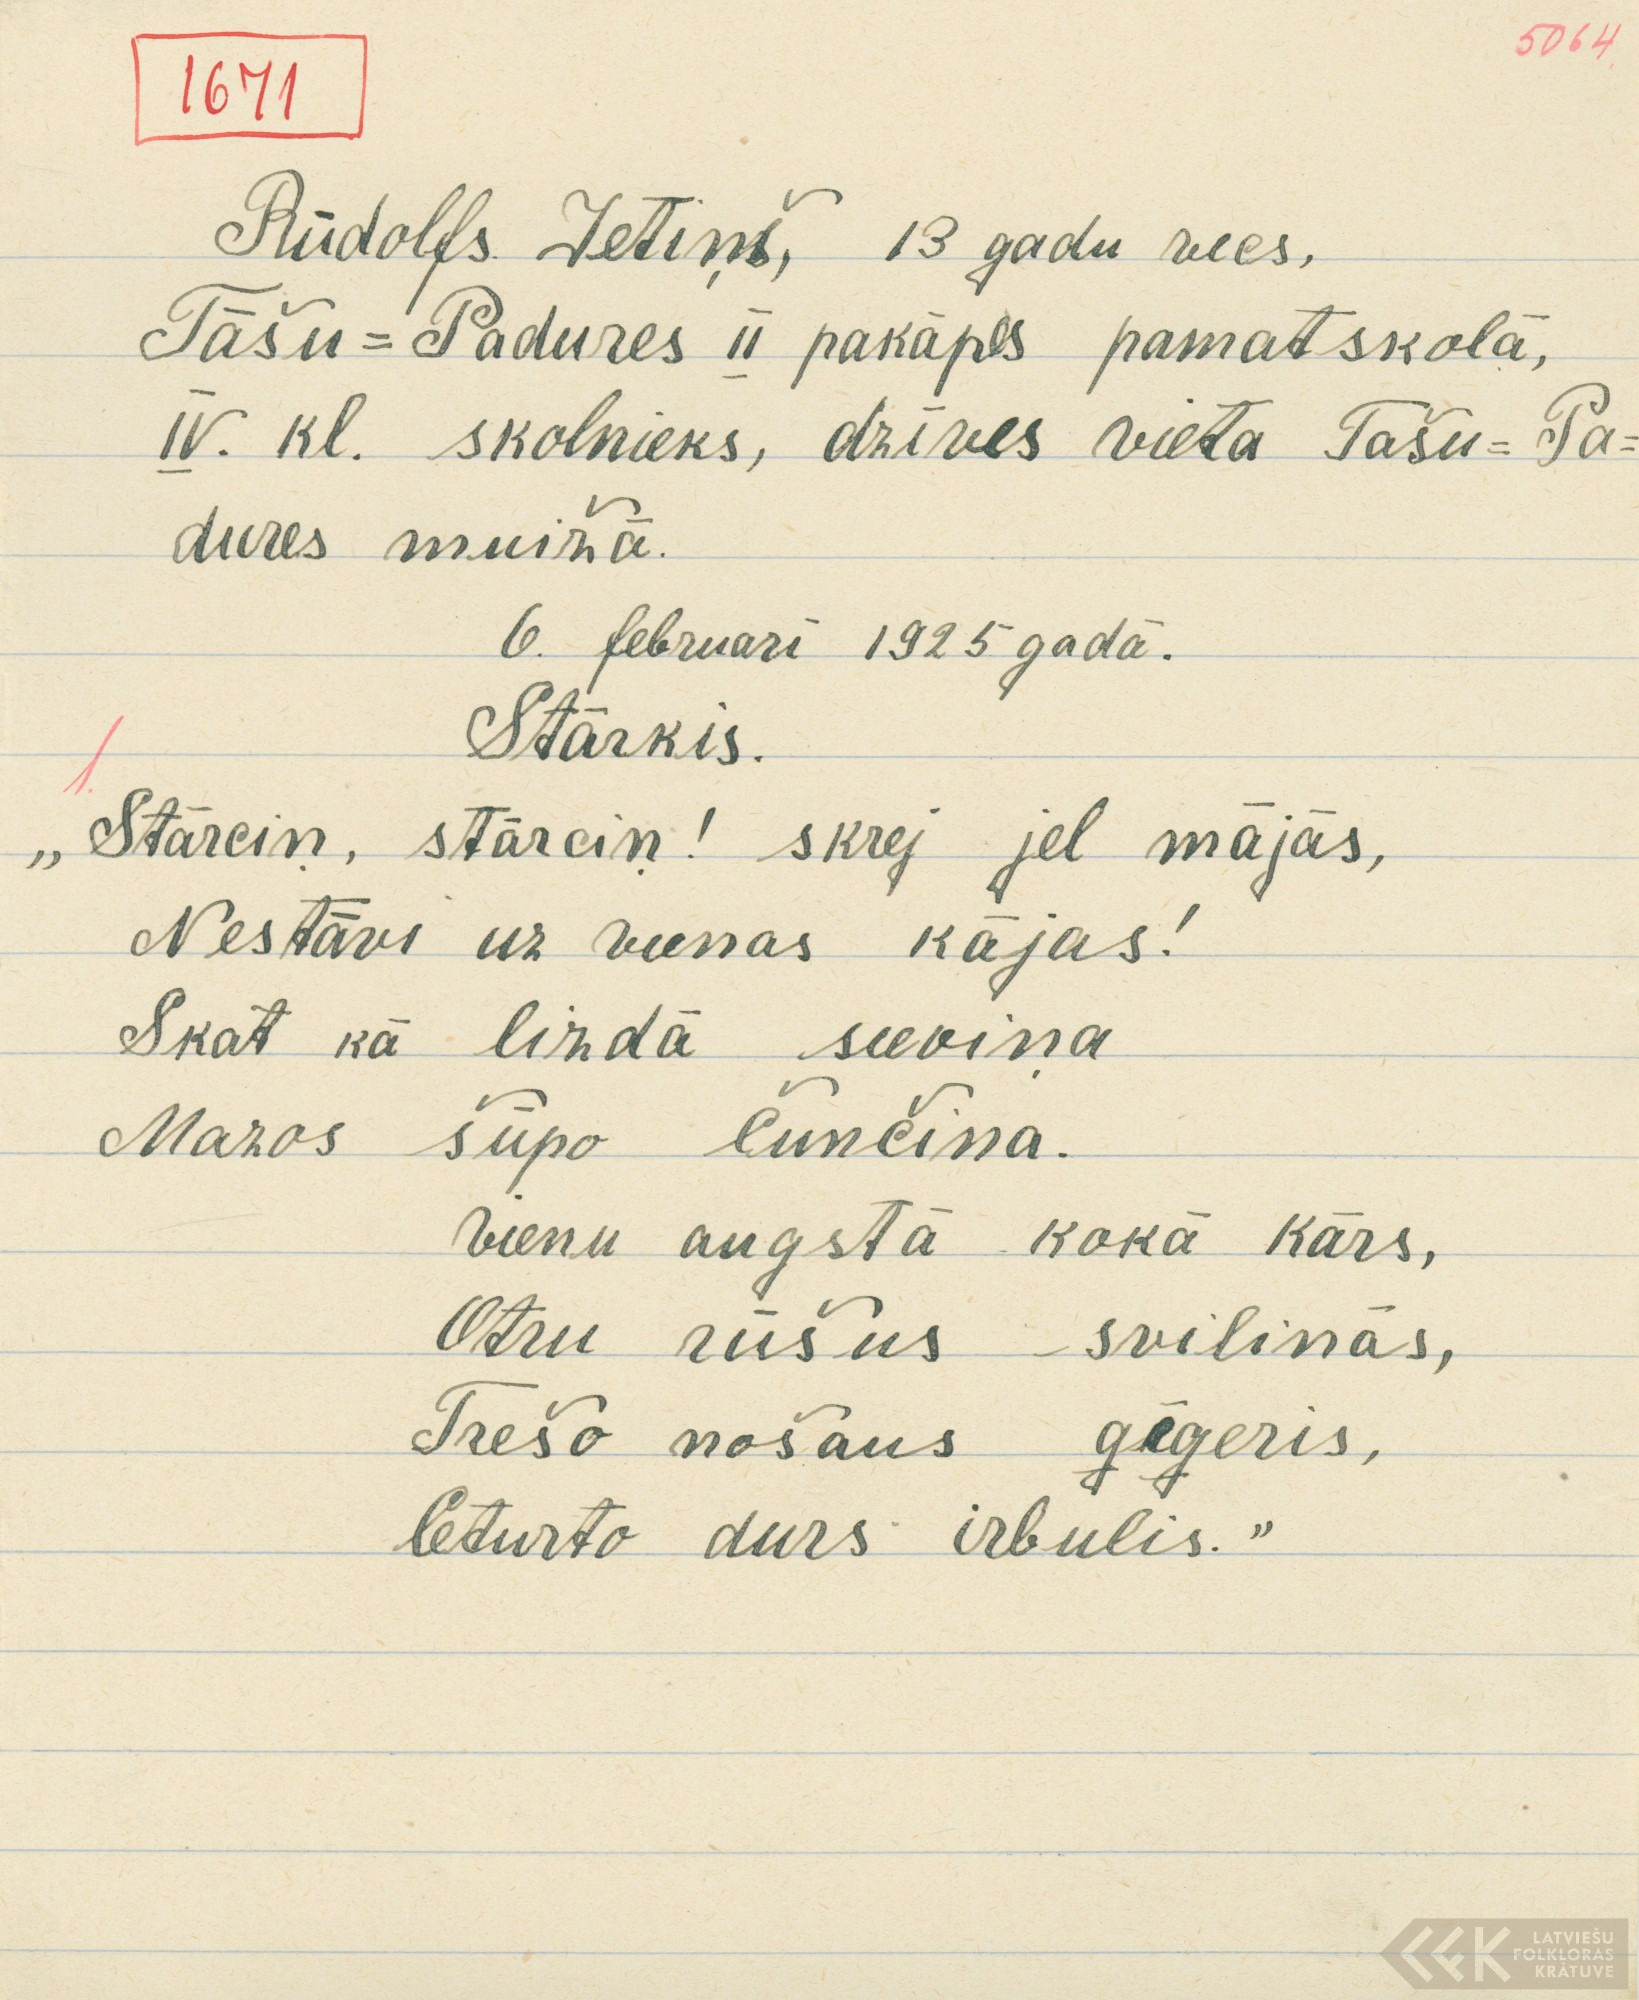 5064
1671
Rūdolfs Jetiņš, 13 gadu vecs,
Tāšu=Padures II pakāpes pamatskolā,
IV. kl. skolnieks, dzīves vieta Tašu=Pa=
dures muižā.
6. februarī 1925 gadā.
Stārkis.
1.
„Stārciņ, stārciņ! skrej jel mājās,
Nestāvi uz vienas kājas!
Skat kā lizdā sieviņa
Mazos šūpo čunčina.
Vienu augstā kokā kārs,
Otru rūšus svilinās,
Trešo nošaus ģēģeris,
Ceturto durs irbulis."
LATVIEŠU
FOLKLORAS
KRĀTUVE